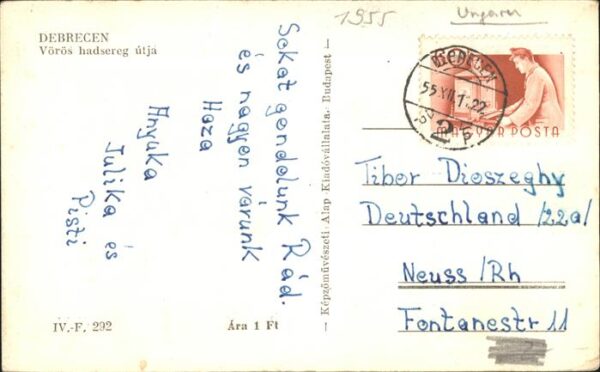 DEBRECEN
Vörös hadsereg útja
1955
Ungarn
DEBRECEN
55 XII.
MAGYAR POSTA
Sokat gondolunk Rád.
és nagyon várunk
Haza
Anyuka
Julika és
Pisti
Képzőművészeti Alap Kiadóvállalata, Budapest
Tibor Dioszeghy
Deutschland /22a/
Neuss /Rh
Fontanestr 11
IV.-F. 292
Ára 1 Ft